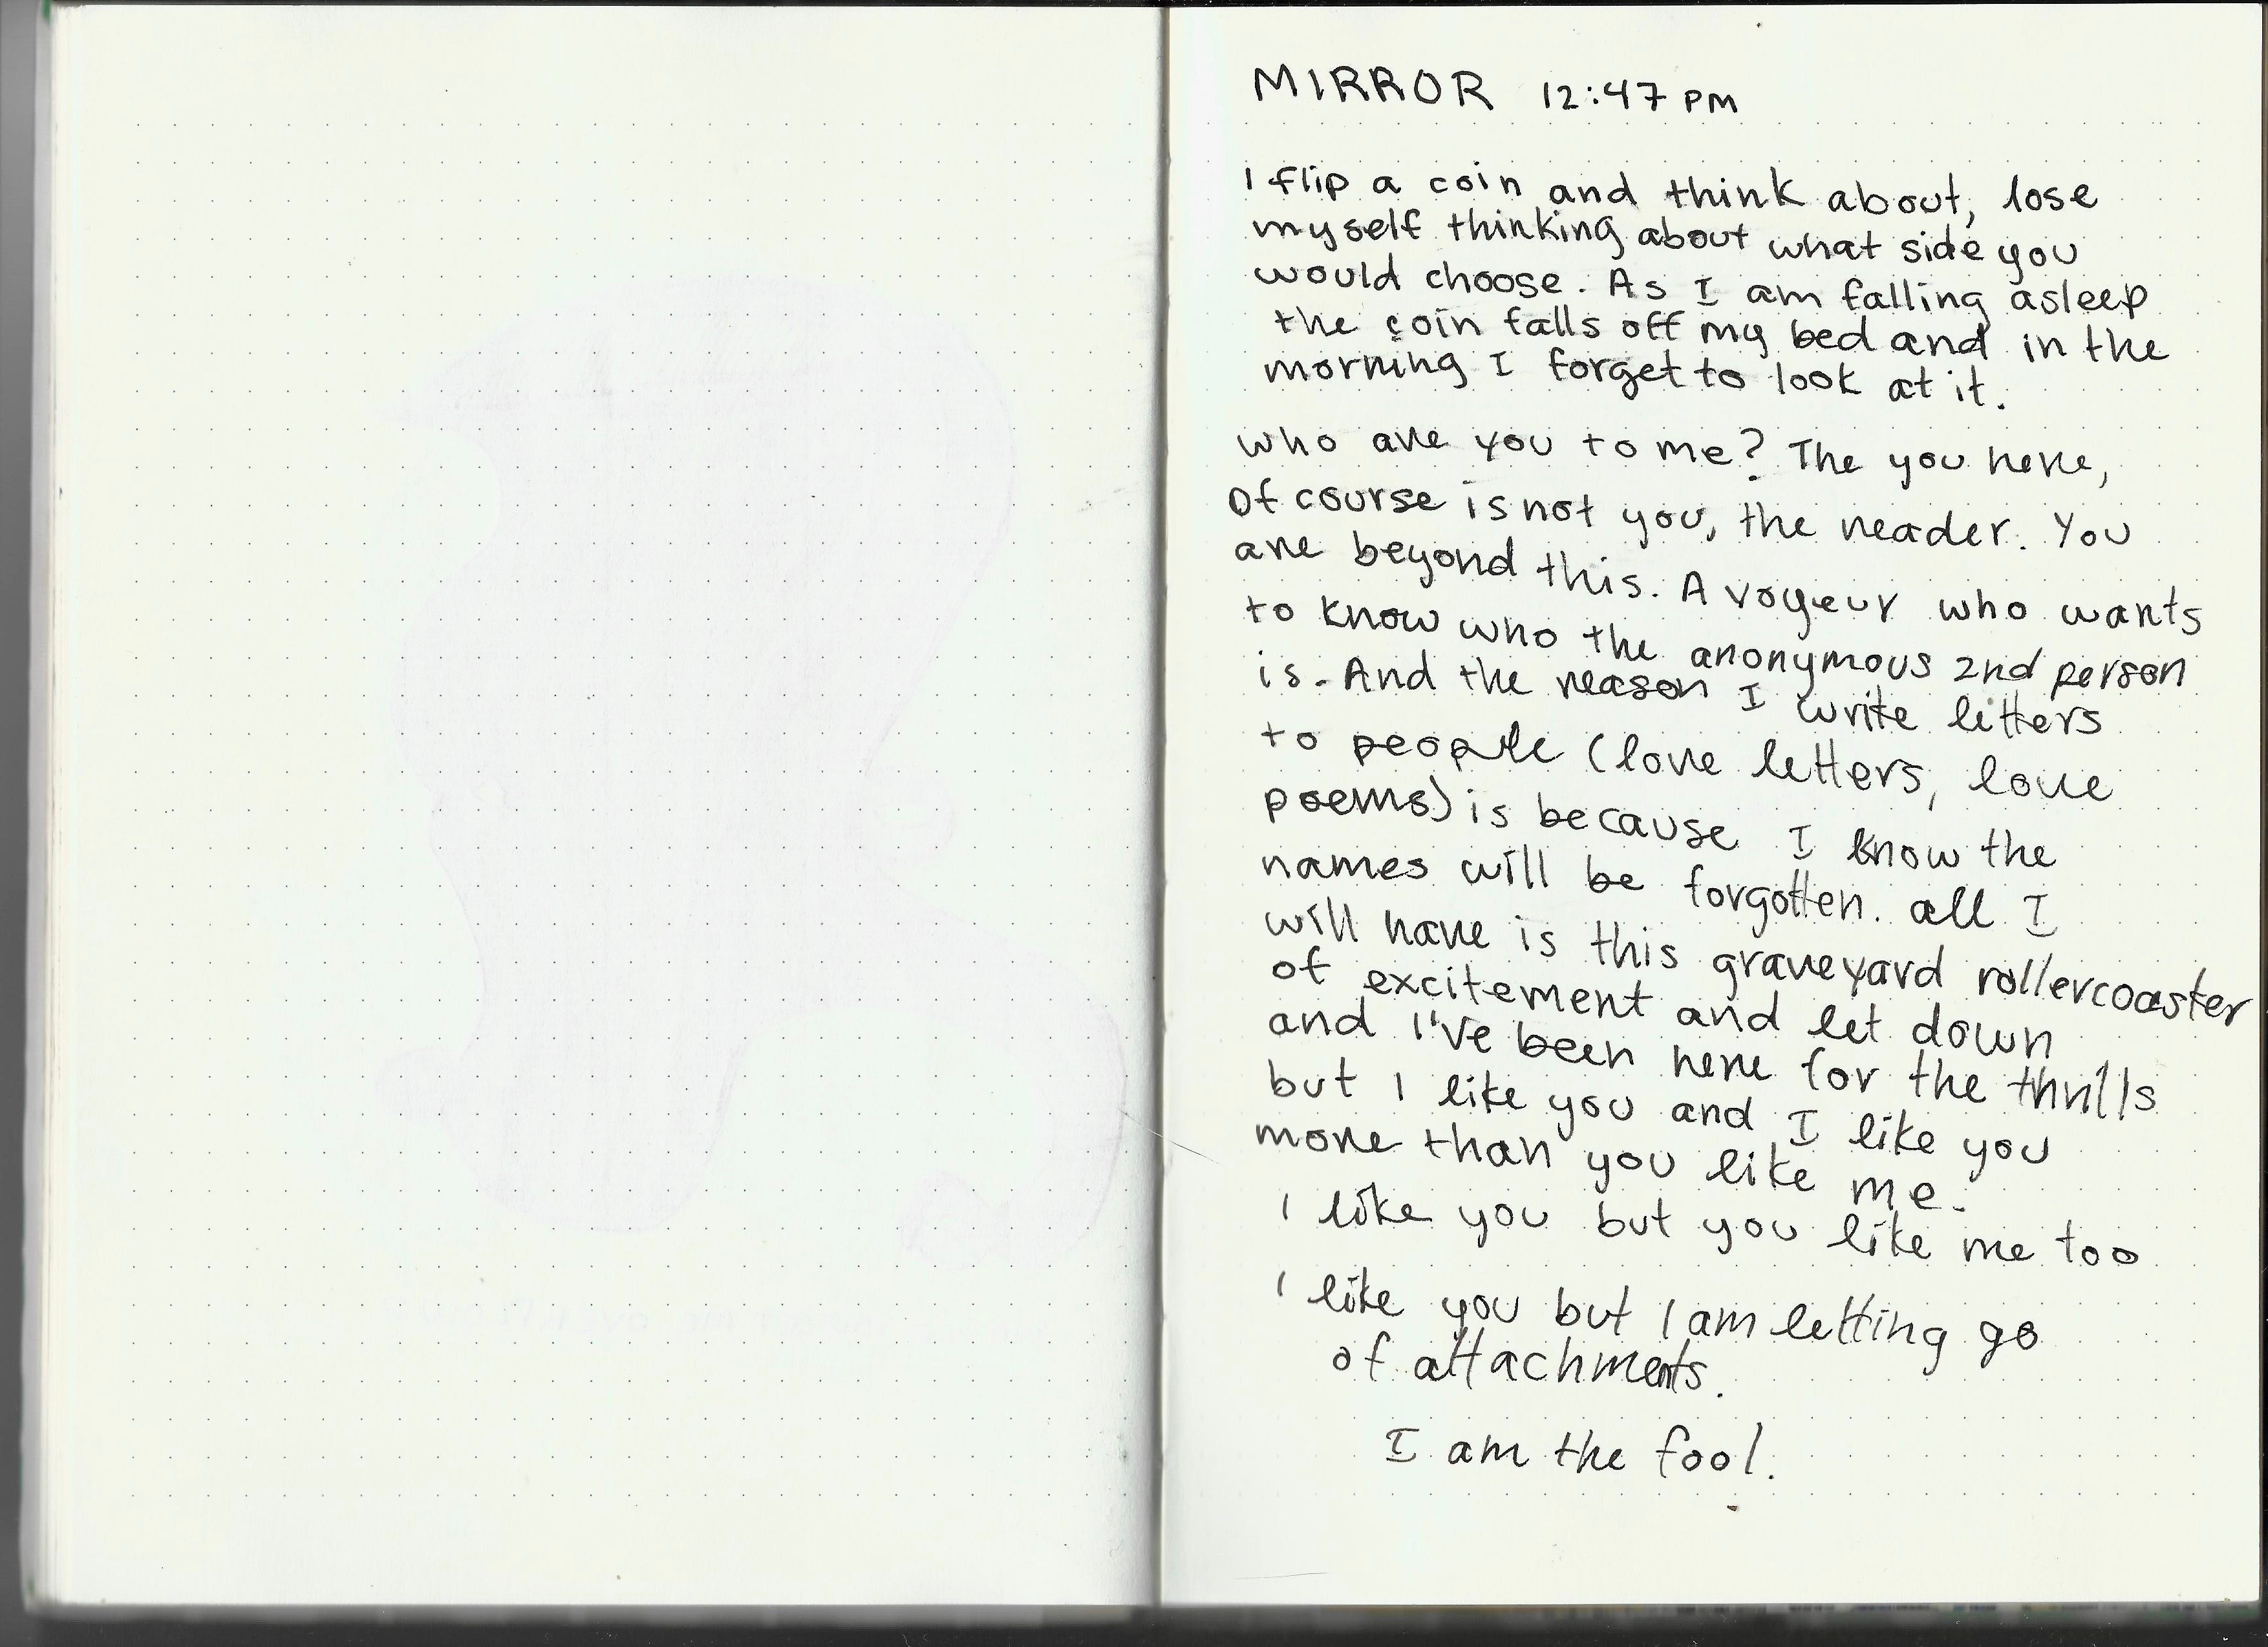 MIRROR 12:47 PM
I flip a coin and think about, lose
myself thinking about what side you
would choose. As I am falling asleep
the coin falls off my bed and in the
morning I forget to look at it.
who are you to me? The you here,
Of course is not you, the reader. You
are beyond this. A voyeur who wants
to know who the anonymous 2nd person
is. And the reason I write letters
to people (love letters, love
poems) is because I know the
names will be forgotten. all I
will have is this graveyard rollercoaster
of excitement and let down
and I've been here for the thrills
but I like you and I like you
more than you like me.
I like you but you like me too
I like you but I am letting go
of attachments.
I am the fool.